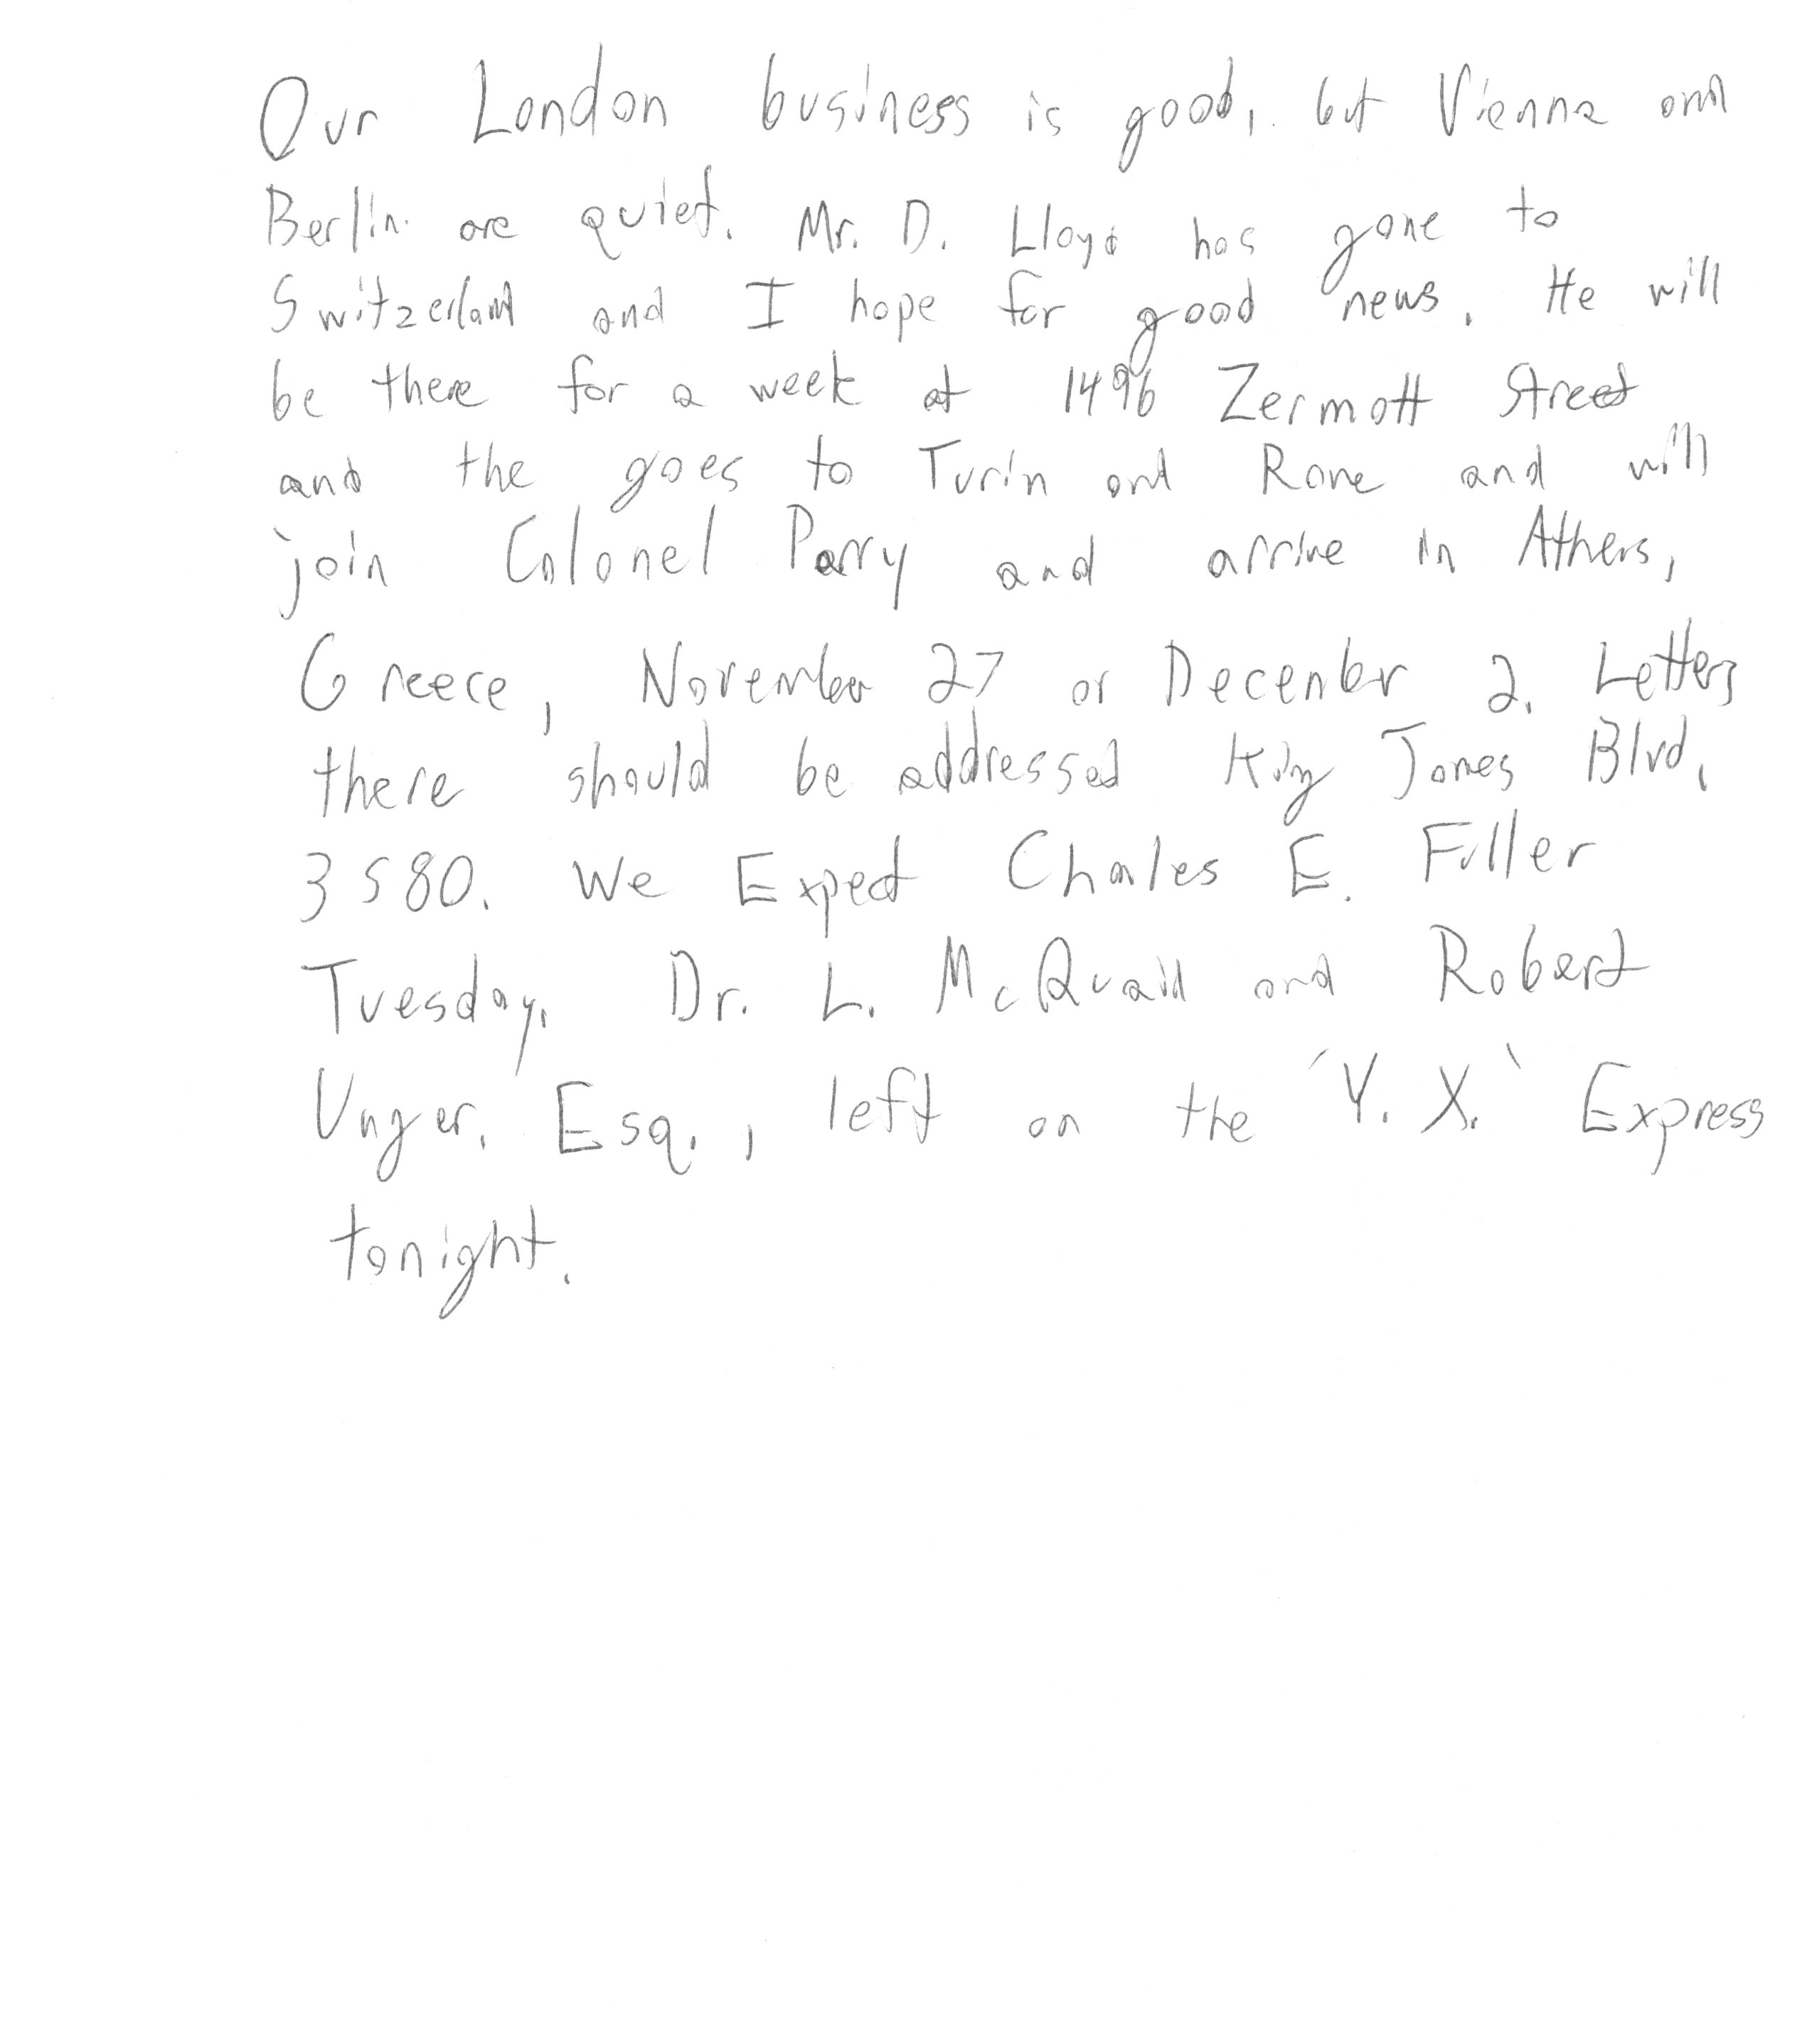 Our London business is good, but Vienna and
Berlin are quiet. Mr. D. Lloyd has gone to
Switzerland and I hope for good news. He will
be there for a week at 1496 Zermott Street
and the goes to Turin and Rome and will
join Colonel Parry and arrive in Athens,
Greece, November 27 or December 2. Letters
there should be addressed King James Blvd.
3580. We Expect Charles E. Fuller
Tuesday. Dr. L. McQuaid and Robert
Unger. Esq., left on the 'Y. X.' Express
tonight.